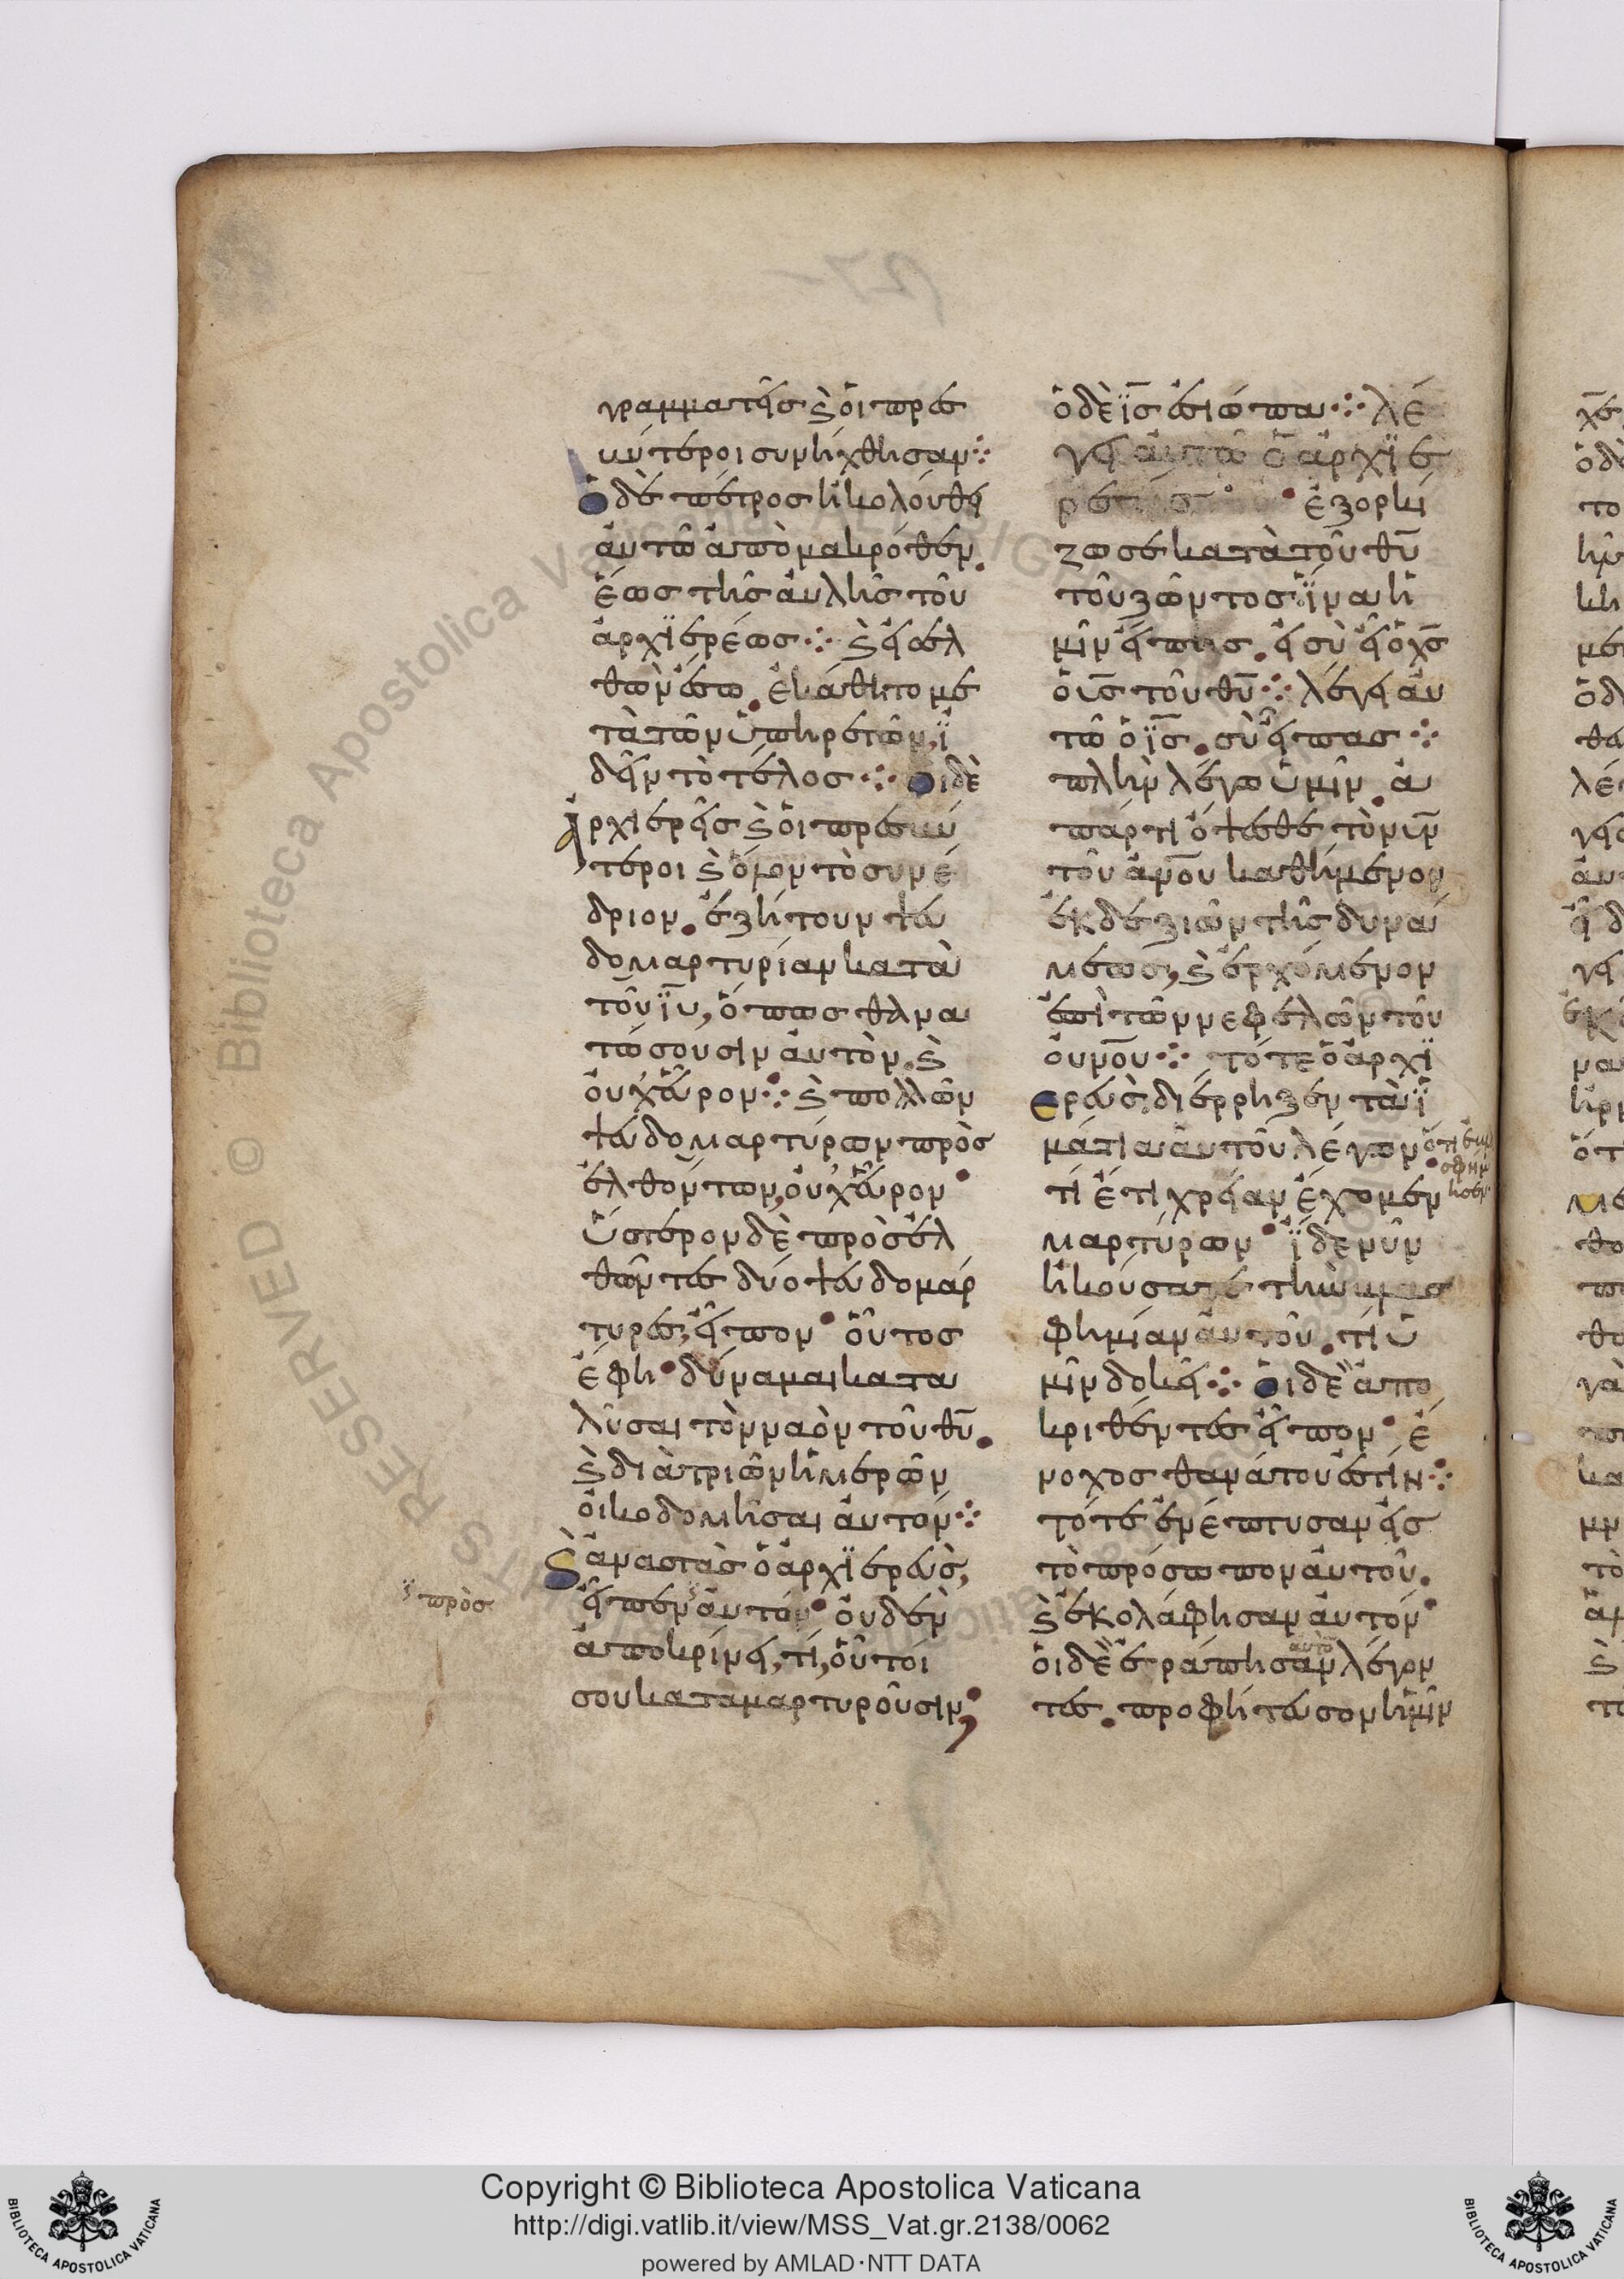 γραμματεῖς ϗ οἱ πρεσ
βύτεροι συνήχθησαν⁘
Ὁ δὲ πέτρος ἠκολούθει
αὐτῶ ἀπὸ μακρόθεν.
ἕως τῆς αὐλῆς τοῦ
ἀρχϊερέως⁘ ϗ εἰσελ
θὼν ἔσω. ἐκάθητο με
τὰ τῶν ὑπηρετῶν, ἰ
δεῖν τὸ τέλος⁘ Οἱ δὲ
ἀρχιερεῖς ϗ οἱ πρεσβύ
τεροι ϗ ὅλον τὸ συνέ
δριον. ἐζήτουν ψευ
δομαρτυρίαν κατὰ
τοῦ ϊυ, ὅπως θανα
τώσουσιν αὐτὸν. ϗ
οὐχ εὗρον⁘ ϗ πολλῶν
ψευδομαρτύρων προσ
ελθόντων, οὐχ εὗρον·
ὕστερον δὲ προσελ
θόντες δύο ψευδομάρ
τυρες, εἶπον· οὗτος
ἔφη· δύναμαι κατα
λῦσαι τὸν ναὸν τοῦ θυ.
ϗ διὰ τριῶν ἡμερῶν
οἰκοδομῆσαι αὐτόν⁘
ϗ ἀναστὰς ὁ ἀρχϊερεὺς,
πρὸσ
εἶπεν αὐτόν· οὐδὲν
ἀποκρίνει, τί, οὗτοί
σου καταμαρτυροῦσιν;
ὁ δὲ ϊς ἐσιώπα⁘ λέ
γει αὐτῶ ὁ ἀρχϊε
ρεὺς· ἐξορκί
ζω σε κατὰ τοῦ θυ
τοῦ ζῶντος ἵνα ἡ
μῖν εἴπης. εἰ σὺ εἶ ὁ χς
ὁ υς τοῦ θυ⁘ λέγει αὐ
τῶ ὁ ϊς. σὺ εἶπας⁘
πλὴν λέγω ὑμῖν. ἀ
πάρτι ὄψεσθε τὸν υν
τοῦ ανου καθήμενον
ἐκ δεξιῶν τῆς δυνά
μεως, ϗ ἐρχόμενον
ἐπὶ τῶν νεφελῶν τοῦ
ουνου⁘ τότε ὁ ἀρχϊ
ερεὺς διέρρηξεν τὰ ἱ
μάτια αὐτοῦ λέγων ὅτι ἐβλα
σφήμ
ησεν
τί ἔτι χρείαν ἔχομεν
μαρτύρων· ἴδε νῦν
ἠκούσατε τὴν βλασ
φημίαν αὐτοῦ. τί ὑ
μῖν δοκεῖ⁘ Οἱ δὲ ἀπο
κριθέντες εἶπον· ἔ
νοχος θανάτου ἐστίν⁘
τότε ἐνέπτυσαν εἰς
τὸ πρόσωπον αὐτοῦ.
ϗ ἐκολάφησαν αὐτόν·
αυτο
οἱ δὲ ἐράπησαν λέγον
τες. προφήτευσον ἡμῖν
Copyright © Biblioteca Apostolica Vaticana
http://digi.vatlib.it/view/MSS_Vat.gr.2138/0062
powered by AMLAD·NTT DATA
BIBLIOTECA APOSTOLICA VATICANA
BIBLIOTECA APOSTOLICA VATICANA